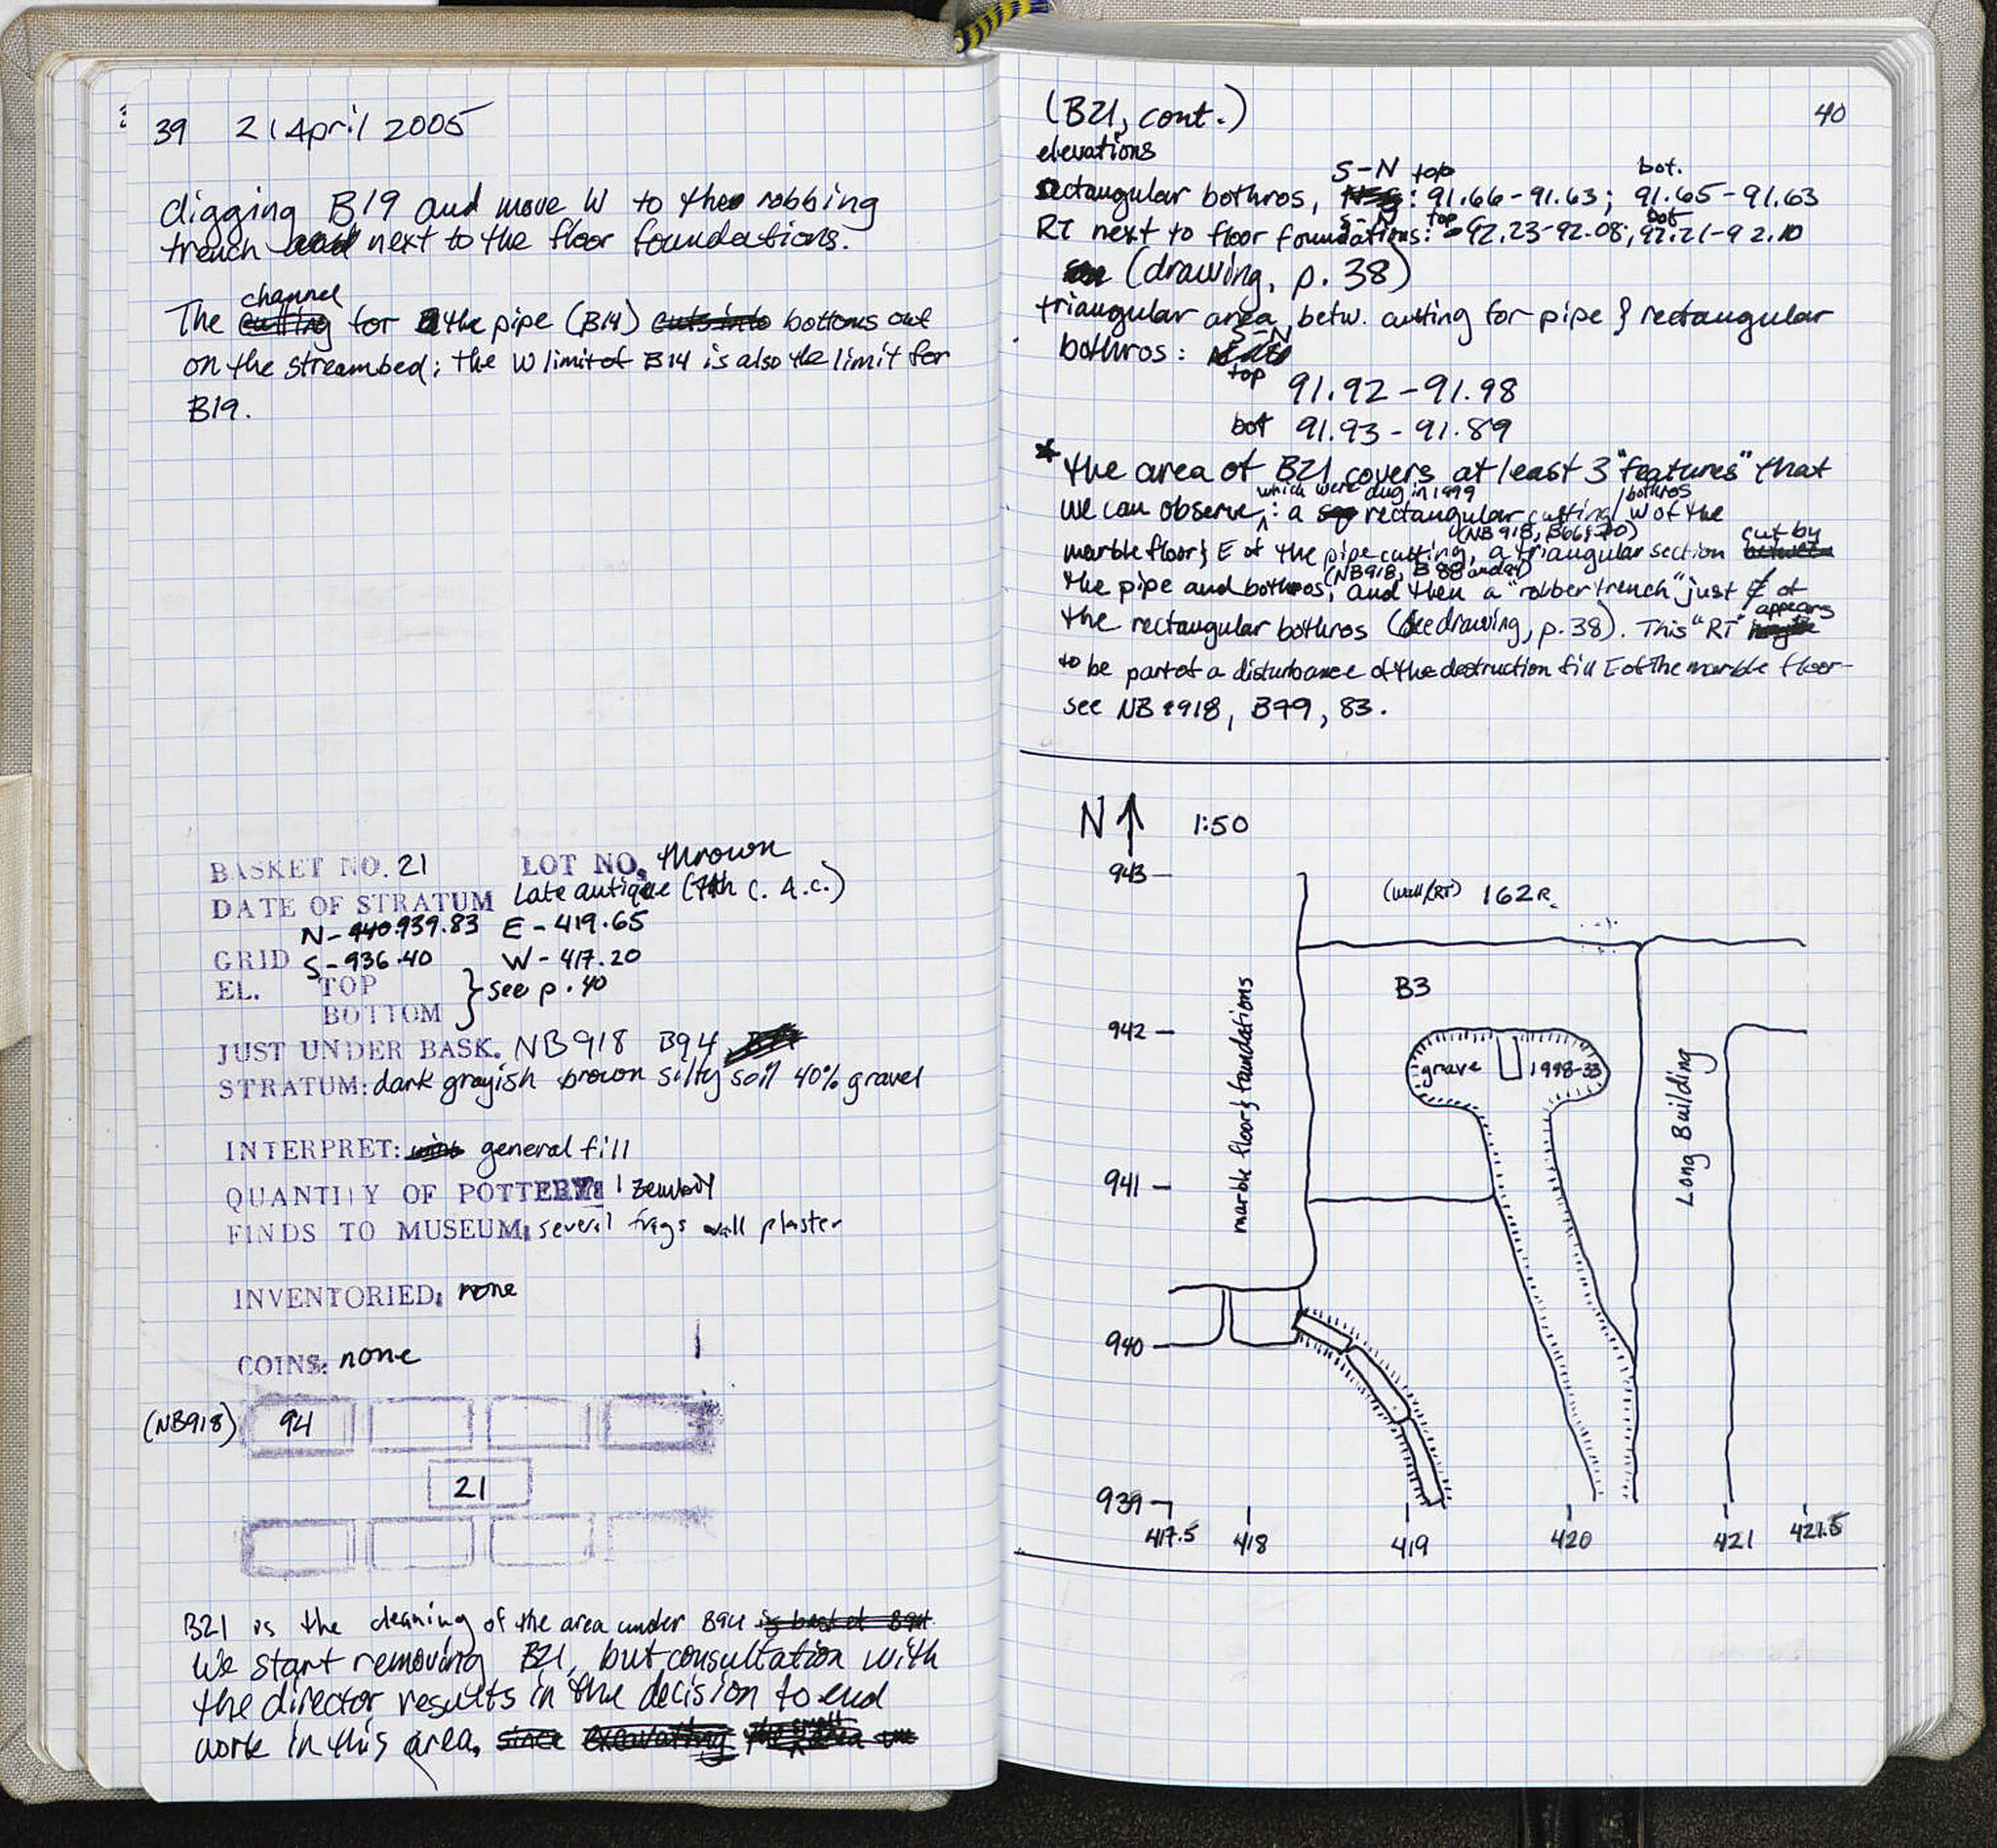 39 21 April 2005
digging B19 and move W to the robbing
trench next to the floor foundations.
The channel for the pipe (B14) bottoms out
on the streambed; the W limit of B14 is also the limit for
B19.
BASKET NO. 21 LOT NO. thrown
DATE OF STRATUM Late antique (7th c. A.C.)
N-939.83 E-419.65
GRID S-936.40 W-417.20
EL. TOP } see p. 40
BOTTOM
JUST UNDER BASK. NB918 B94
STRATUM: dark grayish brown silty soil 40% gravel
INTERPRET: general fill
QUANTITY OF POTTERY: 1 zembil
FINDS TO MUSEUM: several frags wall plaster
INVENTORIED: none
COINS: none
(NB918) 94
21
B21 is the cleaning of the area under B94
We start removing B21, but consultation with
the director results in the decision to end
work in this area.
(B21, cont.) 40
elevations
S-N top bot.
rectangular bothros, : 91.66-91.63; 91.65-91.63
S-N top bot
RT next to floor foundations: 92.23-92.08; 92.21-92.10
(drawing, p. 38)
triangular area betw. cutting for pipe & rectangular
S-N
bothros:
top 91.92-91.98
bot 91.93-91.89
* the area of B21 covers at least 3 "features" that
which were dug in 1999 /bothros
we can observe, : a rectangular cutting W of the
(NB918, B66, 70) cut by
marble floor & E of the pipe cutting, a triangular section
(NB918, B 88 and 94)
the pipe and bothros, and then a "robber trench" just E of
appears
the rectangular bothros (see drawing, p. 38). This "RT"
to be part of a disturbance of the destruction fill E of the marble floor-
see NB 918, B79, 83.
N 1:50
943
(wall/RT) 162R.
B3
942
grave 1998-33
marble floor & foundations
Long Building
941
940
939
417.5 418 419 420 421 421.5